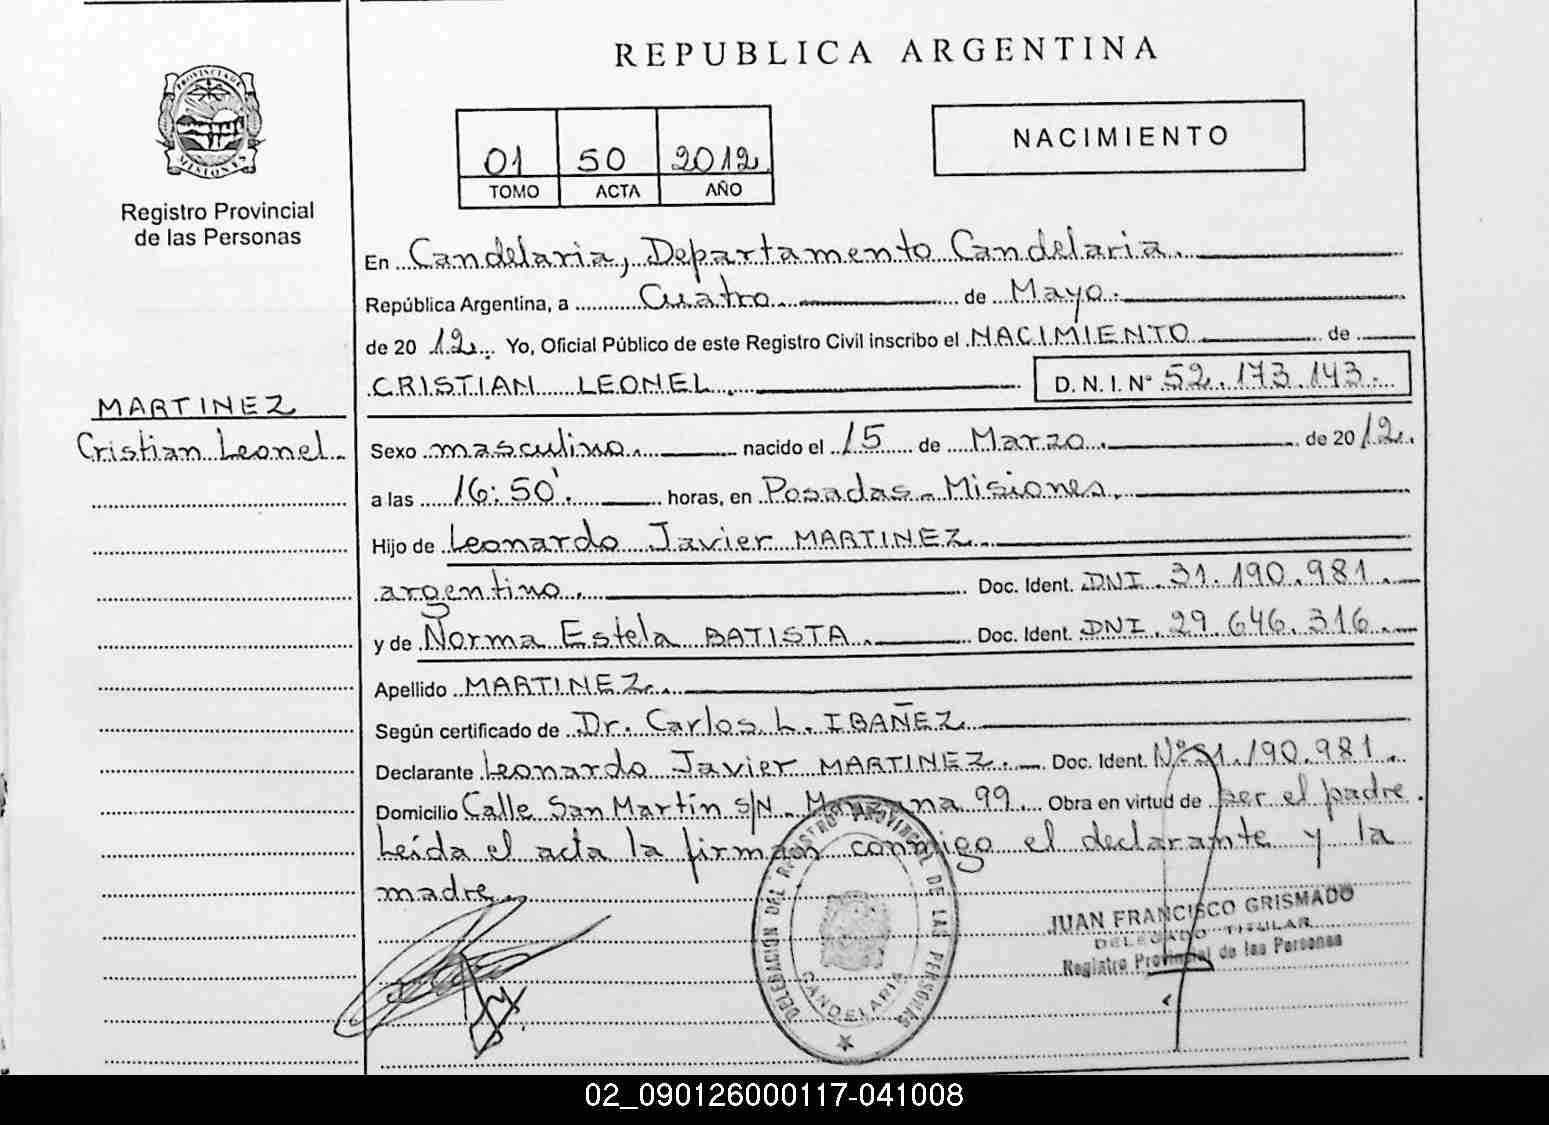 REPUBLICA ARGENTINA
PROVINCIA DE
MISIONES
Registro Provincial
de las Personas
01 50 2012
TOMO ACTA AÑO
NACIMIENTO
En Candelaria, Departamento Candelaria.
República Argentina, a Cuatro de Mayo.
de 2012. Yo, Oficial Público de este Registro Civil inscribo el NACIMIENTO de
CRISTIAN LEONEL. D. N. I. N° 52.173.143.
MARTINEZ
Cristian Leonel.
Sexo masculino. nacido el 15 de Marzo. de 2012.
a las 16:50'. horas, en Posadas - Misiones.
Hijo de Leonardo Javier MARTINEZ.
argentino. Doc. Ident. DNI. 31.190.981.
y de Norma Estela BATISTA. Doc. Ident. DNI. 29.646.316.
Apellido MARTINEZ.
Según certificado de Dr. Carlos L. IBAÑEZ.
Declarante Leonardo Javier MARTINEZ. Doc. Ident. N° 31.190.981.
Domicilio Calle San Martín s/N - Manzana 99. Obra en virtud de ser el padre.
Leída el acta la firman conmigo el declarante y la
madre.
DELEGACIÓN DEL REGISTRO PROVINCIAL DE LAS PERSONAS
CANDELARIA
JUAN FRANCISCO GRISMADO
DELEGADO TITULAR
Registro Provincial de las Personas
02_090126000117-041008